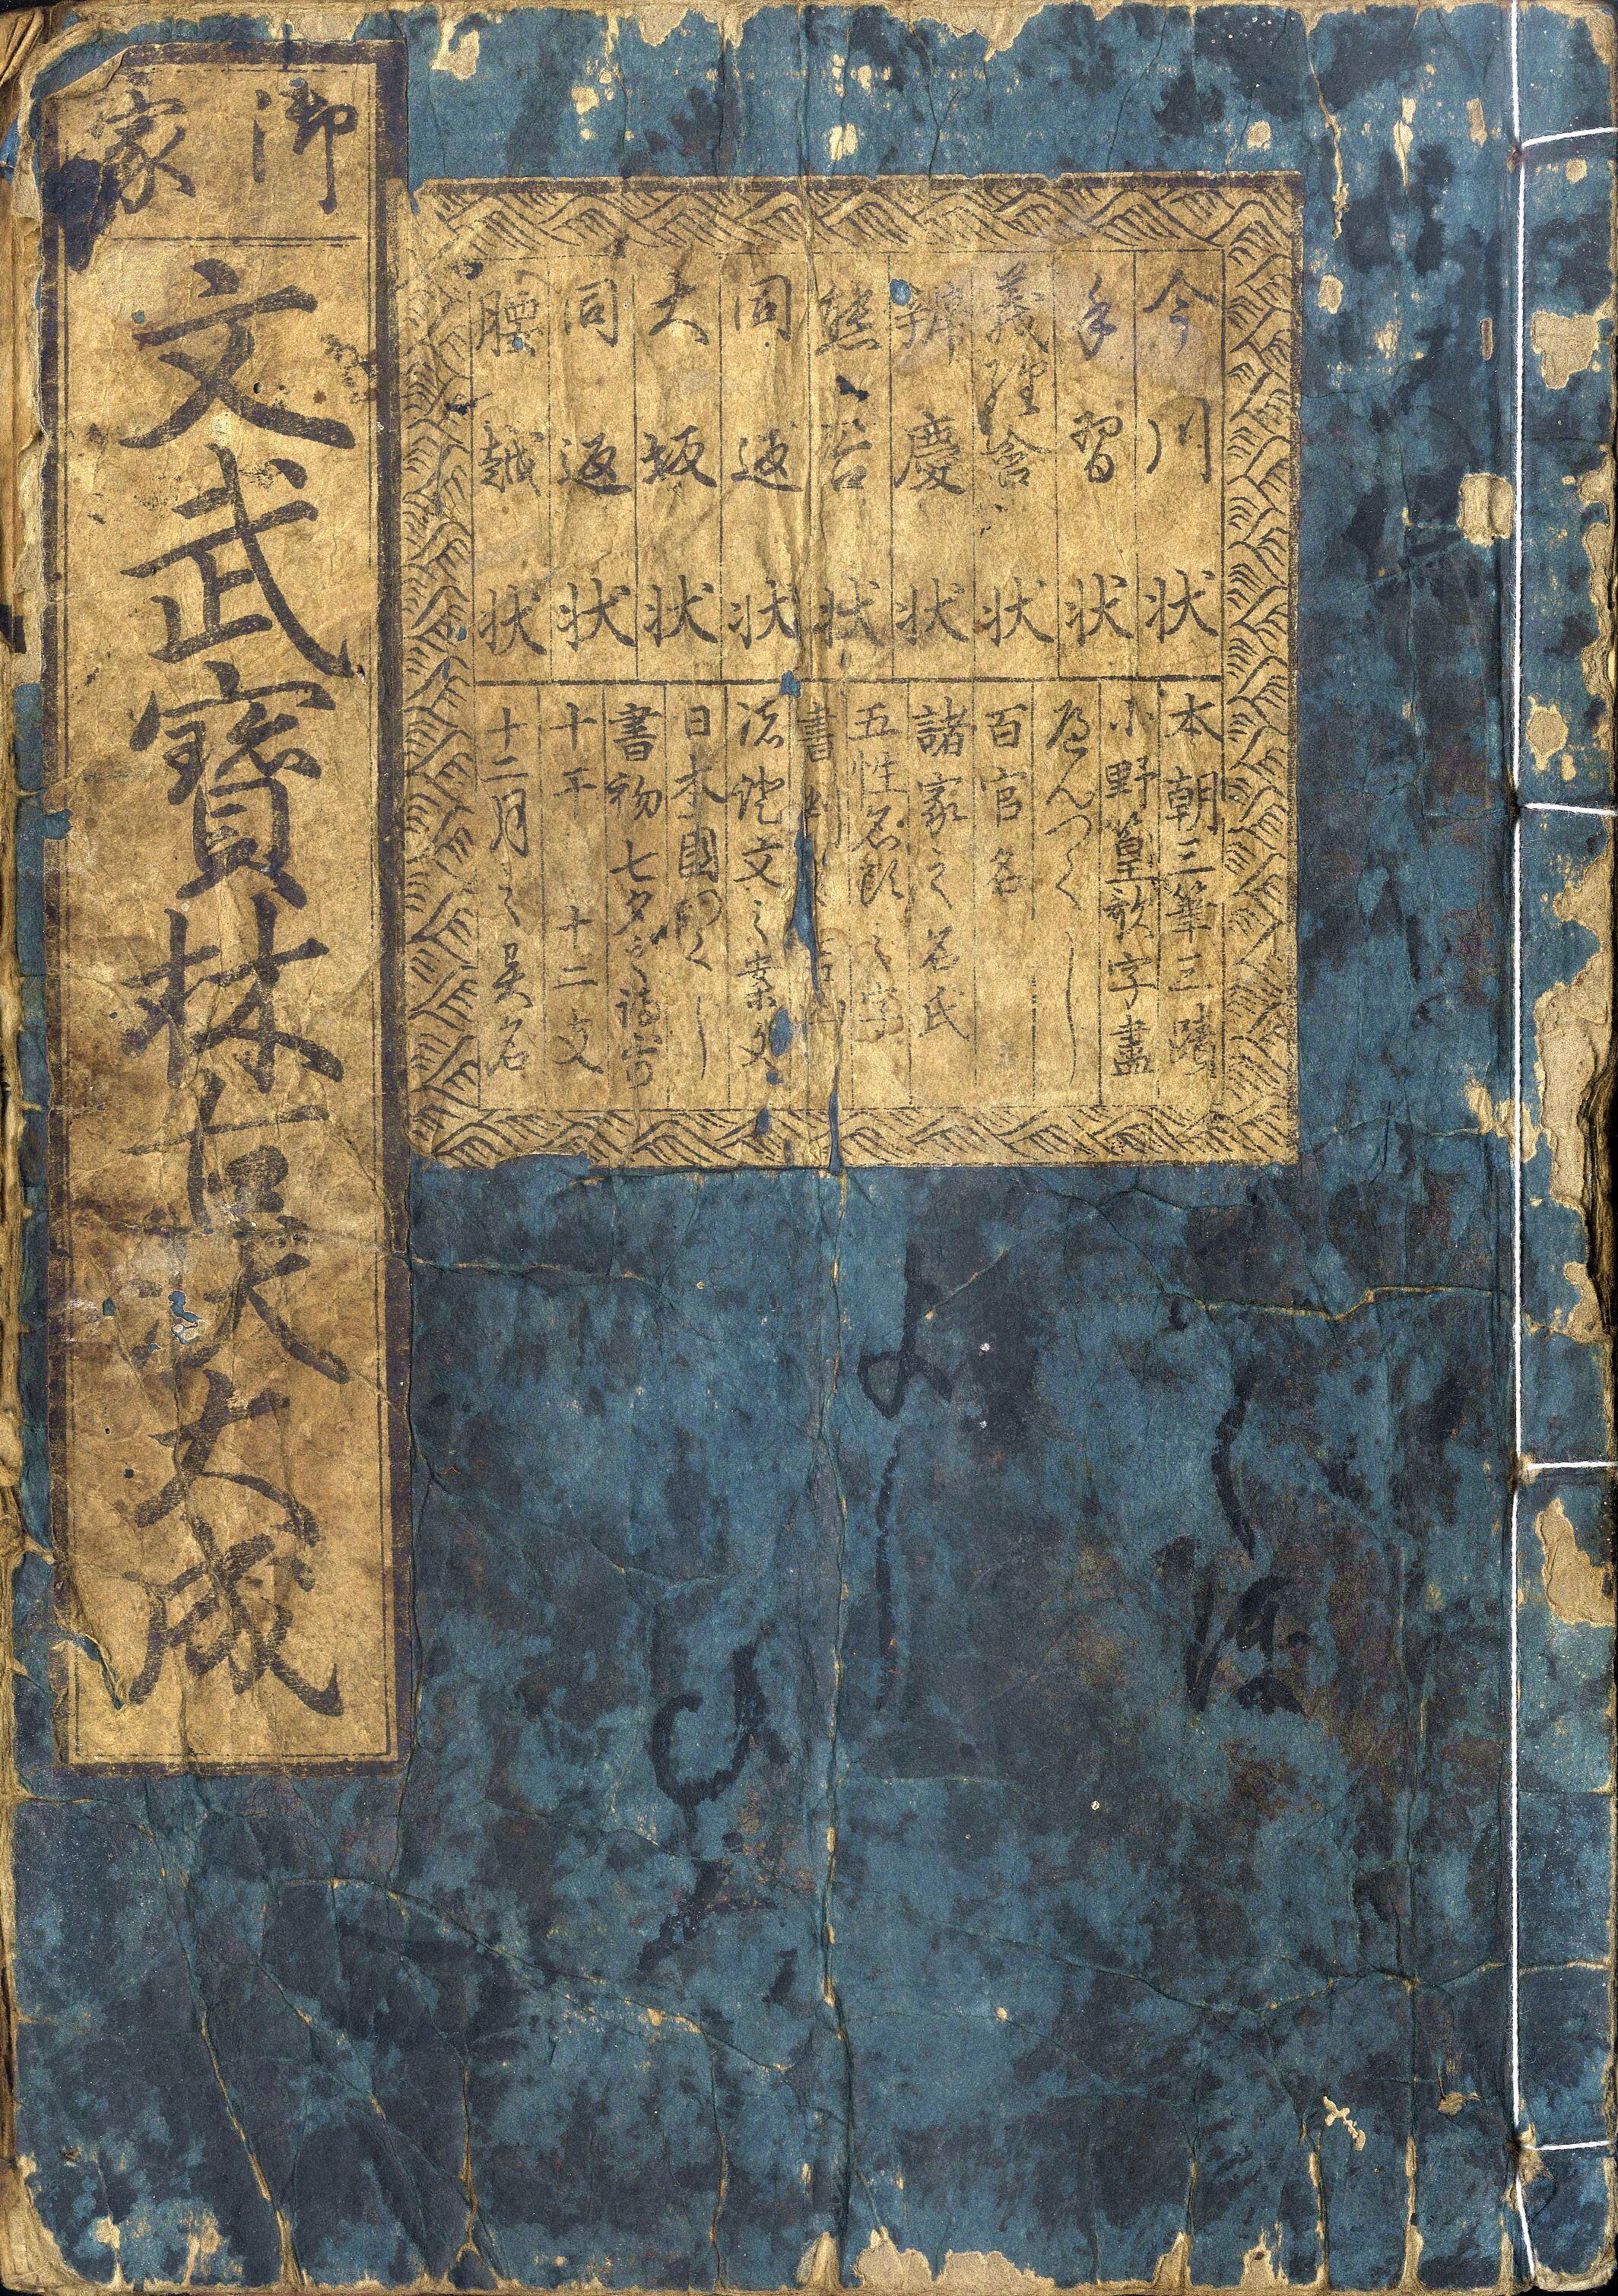 御家
文武寶林古状大成
今川状
手習状
義経含状
辨慶状
熊谷状
同返状
大坂状
同返状
腰越状
本朝三筆三蹟
小野篁歌字盡
へんつくし
百官名
諸家之名氏
五性名頭之字
書判
諸証文之案文
日本國つくし
書初七夕之詩哥
十干十二支
十二月之異名